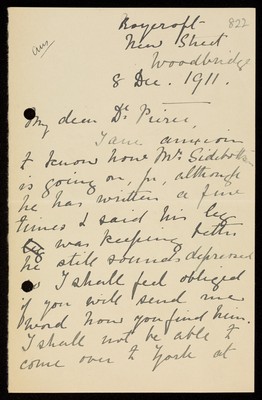 ans
822
Roycroft
New Street
Woodbridge
8 Dec. 1911.
My dear Dr Pierce,
I am anxious
to know how Mr. Sidebottom
is going on, for, although
he has written a few
times & said his leg
was keeping better
he still sounds depressed
I shall feel obliged
if you will send me
word how you find him.
I shall not be able to
come over to York at